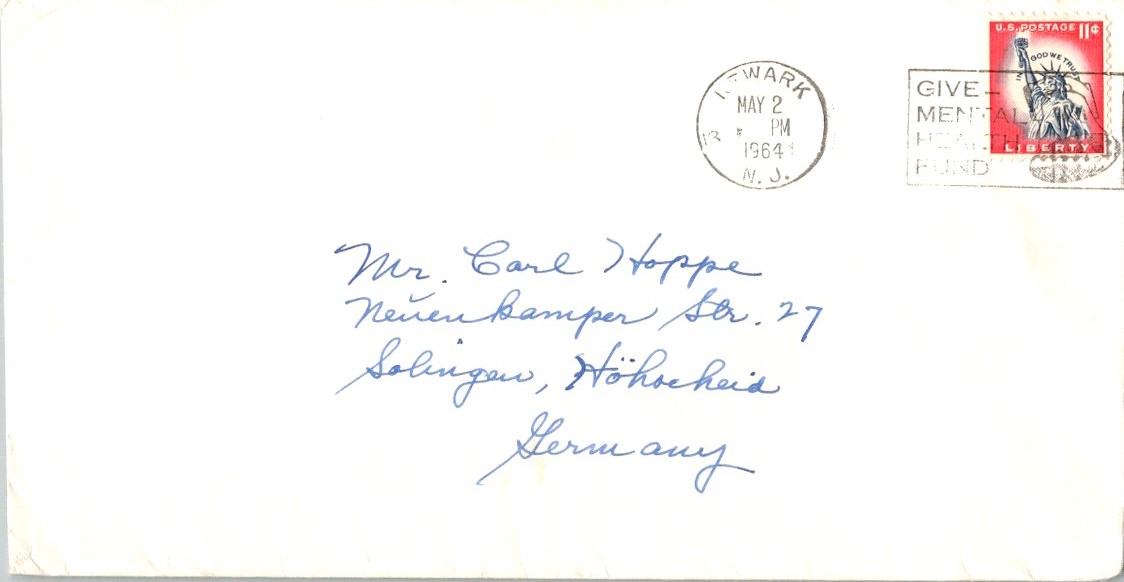 U.S. POSTAGE 11¢
IN GOD WE TRUST
LIBERTY
NEWARK
MAY 2
PM
1964
N. J.
GIVE—
MENTAL
HEALTH
FUND
Mr. Carl Hoppe
Neŭenkamper Str. 27
Solingen, Höhscheid
Germany